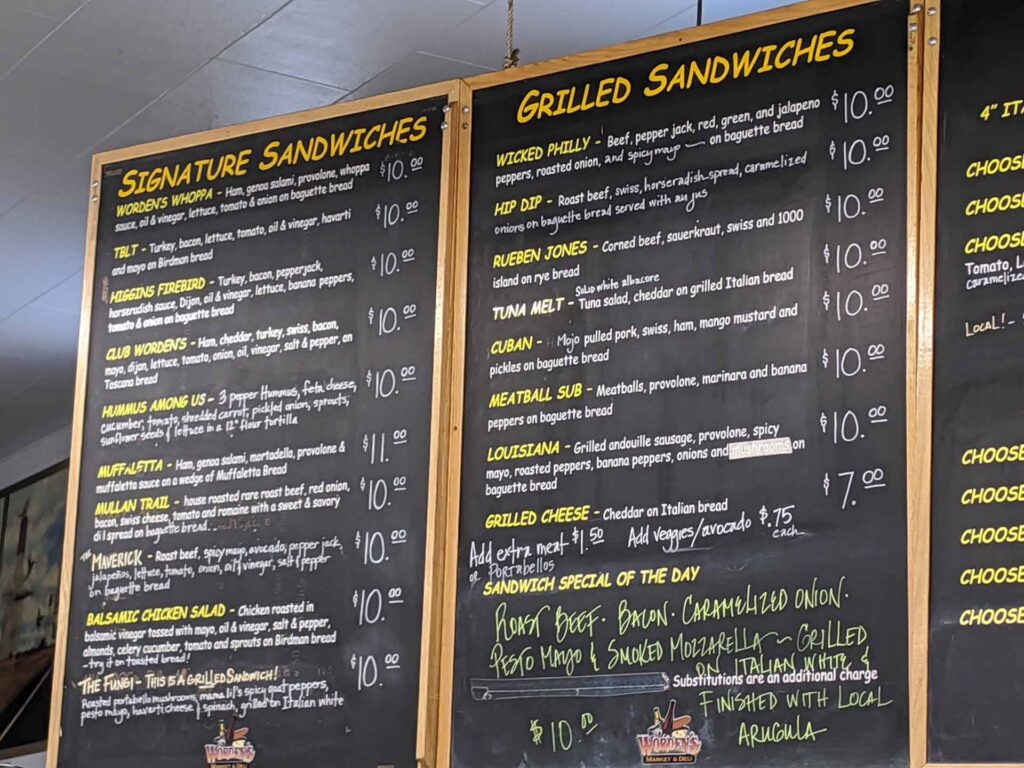 SIGNATURE SANDWICHES
WORDEN'S WHOPPA - Ham, genoa salami, provolone, whoppa $10.00
sauce, oil & vinegar, lettuce, tomato & onion on baguette bread
TBLT - Turkey, bacon, lettuce, tomato, oil & vinegar, havarti $10.00
and mayo on Birdman bread
HIGGINS FIREBIRD - Turkey, bacon, pepperjack, $10.00
horseradish sauce, Dijon, oil & vinegar, lettuce, banana peppers,
tomato & onion on baguette bread
CLUB WORDEN'S - Ham, cheddar, turkey, swiss, bacon, $10.00
mayo, dijon, lettuce, tomato, onion, oil, vinegar, salt & pepper, on
Toscana bread
HUMMUS AMONG US - 3 pepper Hummus, feta cheese, $10.00
cucumber, tomato, shredded carrot, pickled onion, sprouts,
sunflower seeds & lettuce in a 12" flour tortilla
MUFFALETTA - Ham, genoa salami, mortadella, provolone & $11.00
muffaletta sauce on a wedge of Muffaletta Bread
MULLAN TRAIL - house roasted rare roast beef, red onion, $10.00
bacon, swiss cheese, tomato and romaine with a sweet & savory
dill spread on baguette bread..
THE MAVERICK - Roast beef, spicy mayo, avocado, pepper jack, $10.00
jalapeños, lettuce, tomato, onion, oil & vinegar, salt & pepper
on baguette bread
BALSAMIC CHICKEN SALAD - Chicken roasted in $10.00
balsamic vinegar tossed with mayo, oil & vinegar, salt & pepper,
almonds, celery cucumber, tomato and sprouts on Birdman bread
-try it on toasted bread!
THE FUNGI - THIS IS A GRILLED SANDWICH! $10.00
Roasted portabello mushrooms, mama lil's spicy goat peppers,
pesto mayo, havarti cheese & spinach, grilled on Italian white
WORDEN'S
MARKET & DELI
GRILLED SANDWICHES
WICKED PHILLY - Beef, pepper jack, red, green, and jalapeno $10.00
peppers, roasted onion, and spicy mayo on baguette bread
HIP DIP - Roast beef, swiss, horseradish spread, caramelized $10.00
onions on baguette bread served with au jus
RUEBEN JONES - Corned beef, sauerkraut, swiss and 1000 $10.00
island on rye bread
Solid white albacore
TUNA MELT - Tuna salad, cheddar on grilled Italian bread $10.00
CUBAN - Mojo pulled pork, swiss, ham, mango mustard and $10.00
pickles on baguette bread
MEATBALL SUB - Meatballs, provolone, marinara and banana $10.00
peppers on baguette bread
LOUISIANA - Grilled andouille sausage, provolone, spicy $10.00
mayo, roasted peppers, banana peppers, onions and mushrooms on
baguette bread
GRILLED CHEESE - Cheddar on Italian bread $7.00
Add extra meat $1.50 Add veggies/avocado $.75
or PORTABELLOS each
SANDWICH SPECIAL OF THE DAY
ROAST BEEF · BACON · CARAMELIZED ONION ·
PESTO MAYO & SMOKED MOZZARELLA ~ GRILLED
ON ITALIAN WHITE &
Substitutions are an additional charge
FINISHED WITH LOCAL
ARUGULA
$10.00
WORDEN'S
MARKET & DELI
4" ITA
CHOOSE
CHOOSE
CHOOSE
Tomato, L
caramelize
LOCAL! -
CHOOSE
CHOOSE
CHOOSE
CHOOSE
CHOOSE